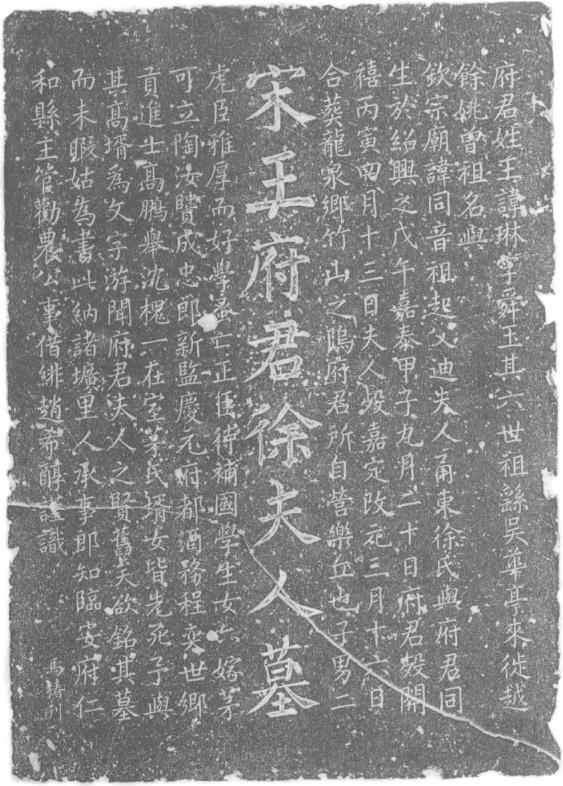 府君姓王諱琳字舜玉其六世祖繇吳華亭來徙越
餘姚曾祖名與
欽宗廟諱同音祖起父迪夫人甬東徐氏與府君同
生於紹興之戊午嘉泰甲子九月二十日府君歿開
禧丙寅四月十三日夫人歿嘉定改元三月十六日
合葬龍泉鄉竹山之隝府君所自營樂丘也子男二
宋王府君徐夫人墓
虎臣雅厚而好學蚤亡正臣待補國學生女六嫁茅
可立陶汝賡成忠郎新監慶元府都酒務程奕世鄉
貢進士高鵬舉沈槐一在室茅氏壻女皆先死予與
其高壻爲文字游聞府君夫人之賢舊矣欲銘其墓
而未暇姑爲書此納諸壙里人承事郎知臨安府仁
和縣主管勸農公事借緋趙希醇謹識
馬鑄刊